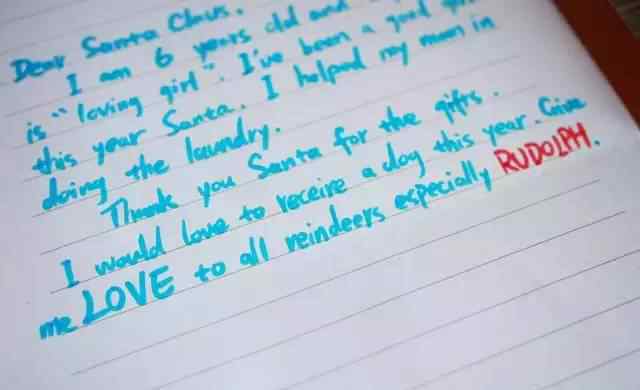 Dear Santa Claus.
I am 6 years old and
is "loving girl". I've been a good
this year Santa. I helped my mom in
doing the laundry.
Thank you Santa for the gifts.
I would love to receive a dog this year. Give
me LOVE to all reindeers especially RUDOLPH.